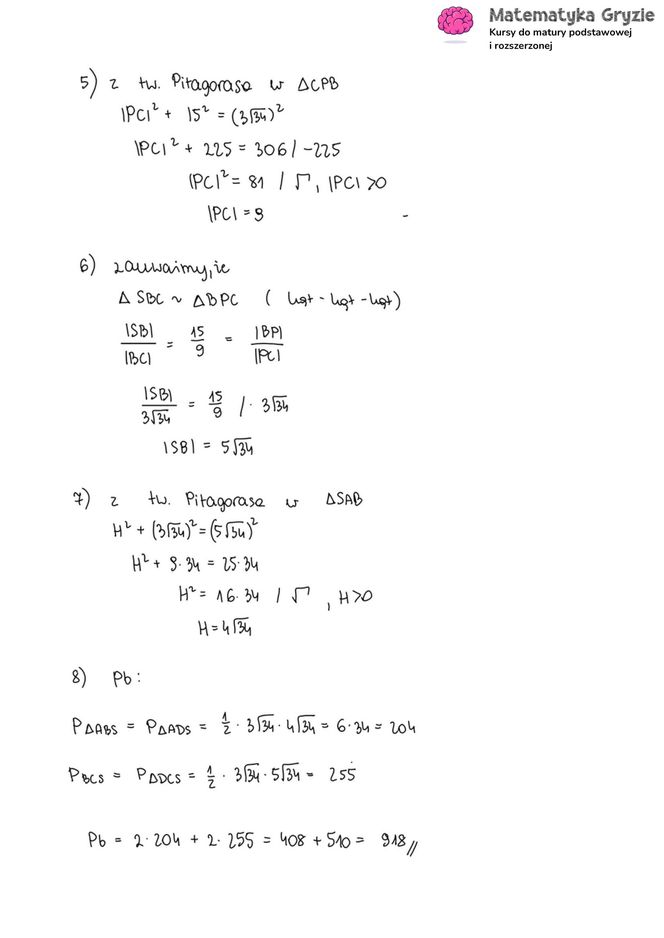 Matematyka Gryzie
Kursy do matury podstawowej
i rozszerzonej
5) z tw. Pitagorasa w ΔCPB
|PC|² + 15² = (3√34)²
|PC|² + 225 = 306 / -225
|PC|² = 81 / √ , |PC| >0
|PC| = 9
6) zauważmy, że
Δ SBC ~ ΔBPC ( kąt - kąt - kąt)
|SB|/|BC| = 15/9 = |BP|/|PC|
|SB|/3√34 = 15/9 / · 3√34
|SB| = 5√34
7) z tw. Pitagorasa w ΔSAB
H² + (3√34)² = (5√34)²
H² + 9·34 = 25·34
H² = 16·34 / √ , H>0
H = 4√34
8) Pb:
PΔABS = PΔADS = 1/2 · 3√34 · 4√34 = 6·34 = 204
PBCS = PΔDCS = 1/2 · 3√34 · 5√34 = 255
Pb = 2·204 + 2·255 = 408 + 510 = 918//